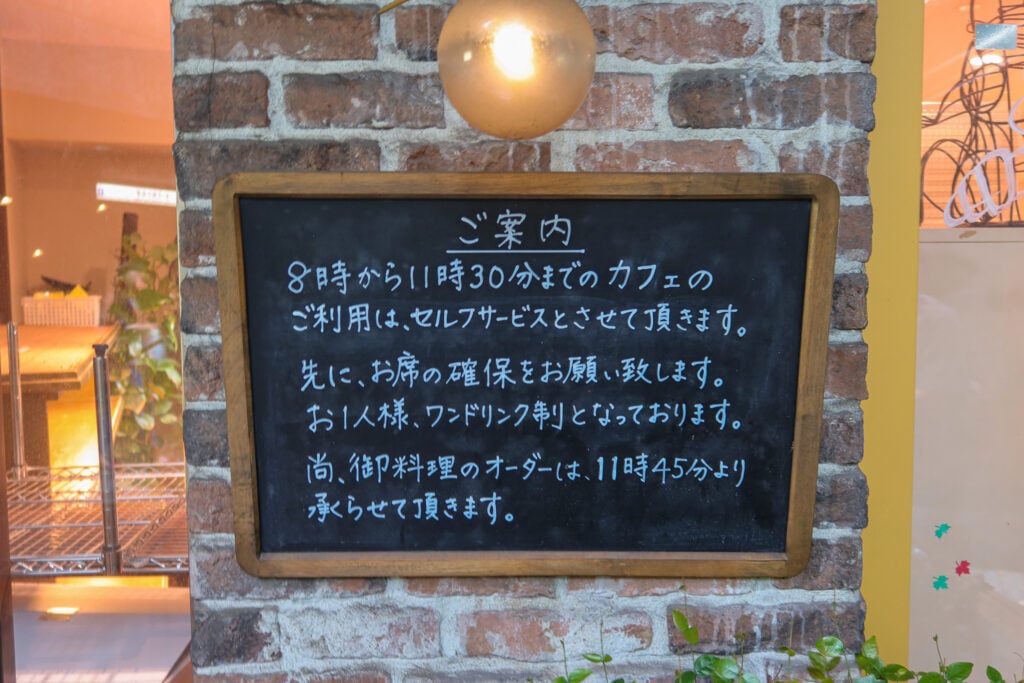 ご案内
8時から11時30分までのカフェの
ご利用は、セルフサービスとさせて頂きます。
先に、お席の確保をお願い致します。
お1人様、ワンドリンク制となっております。
尚、御料理のオーダーは、11時45分より
承くらせて頂きます。